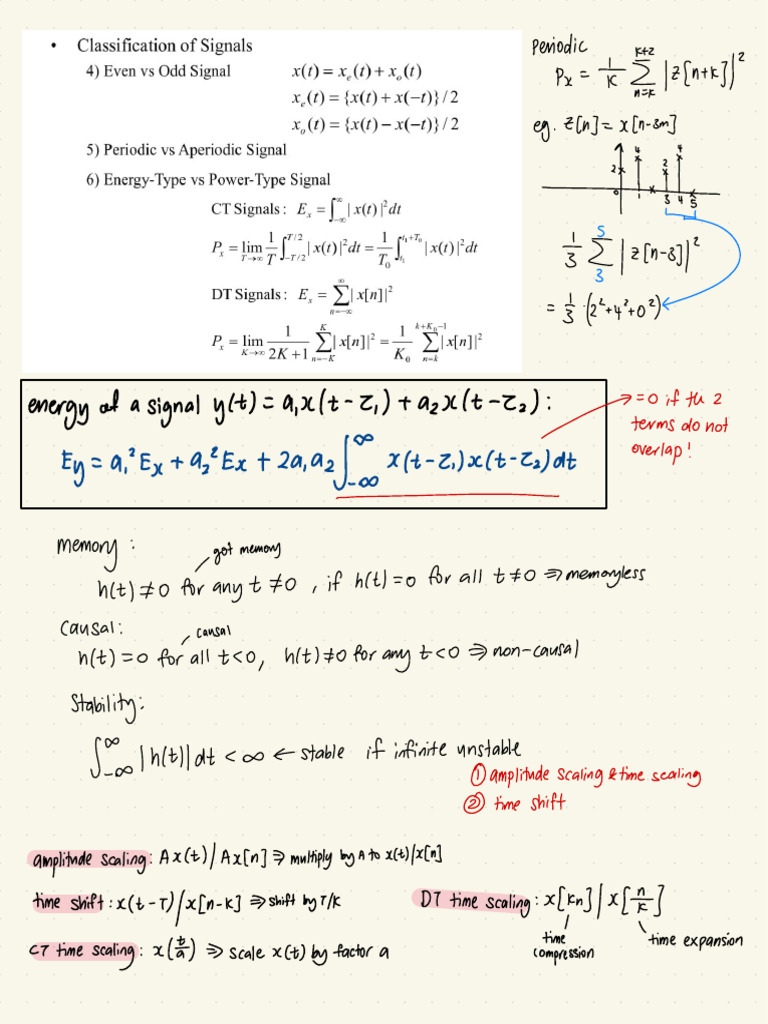 • Classification of Signals
4) Even vs Odd Signal x(t) = x_e(t) + x_o(t)
x_e(t) = {x(t) + x(−t)} / 2
x_o(t) = {x(t) − x(−t)} / 2
5) Periodic vs Aperiodic Signal
6) Energy-Type vs Power-Type Signal
CT Signals: E_x = ∫_{−∞}^{∞} |x(t)|² dt
P_x = lim_{T→∞} 1/T ∫_{−T/2}^{T/2} |x(t)|² dt = 1/T_0 ∫_{t_1}^{t_1+T_0} |x(t)|² dt
DT Signals: E_x = ∑_{n=−∞}^{∞} |x[n]|²
P_x = lim_{K→∞} 1/(2K+1) ∑_{n=−K}^{K} |x[n]|² = 1/K_0 ∑_{n=k}^{k+K_0−1} |x[n]|²
Periodic
P_x = 1/K ∑_{n=K}^{K+2} |z[n+K]|²
eg. z[n] = x[n-3m]
4 4
2 2
0 1 3 4 5
1/3 ∑_{3}^{5} |z[n-3]|²
= 1/3 · (2² + 4² + 0²)
energy of a signal y(t) = a₁x(t-τ₁) + a₂x(t-τ₂) :
Ey = a₁²Ex + a₂²Ex + 2a₁a₂ ∫_{-∞}^{∞} x(t-τ₁)x(t-τ₂)dt
=0 if the 2
terms do not
overlap!
memory :
got memory
h(t) ≠ 0 for any t ≠ 0 , if h(t) = 0 for all t ≠ 0 ⇒ memoryless
causal:
causal
h(t) = 0 for all t<0, h(t) ≠ 0 for any t<0 ⇒ non-causal
Stability:
∫_{-∞}^{∞} |h(t)| dt < ∞ ← stable if infinite unstable
① amplitude scaling & time scaling
② time shift
amplitude scaling : Ax(t) / Ax[n] ⇒ multiply by A to x(t)/x[n]
time shift : x(t-T) / x[n-K] ⇒ shift by T/K
CT time scaling : x(t/a) ⇒ scale x(t) by factor a
DT time scaling : x[kn] / x[n/k]
time
compression
time expansion